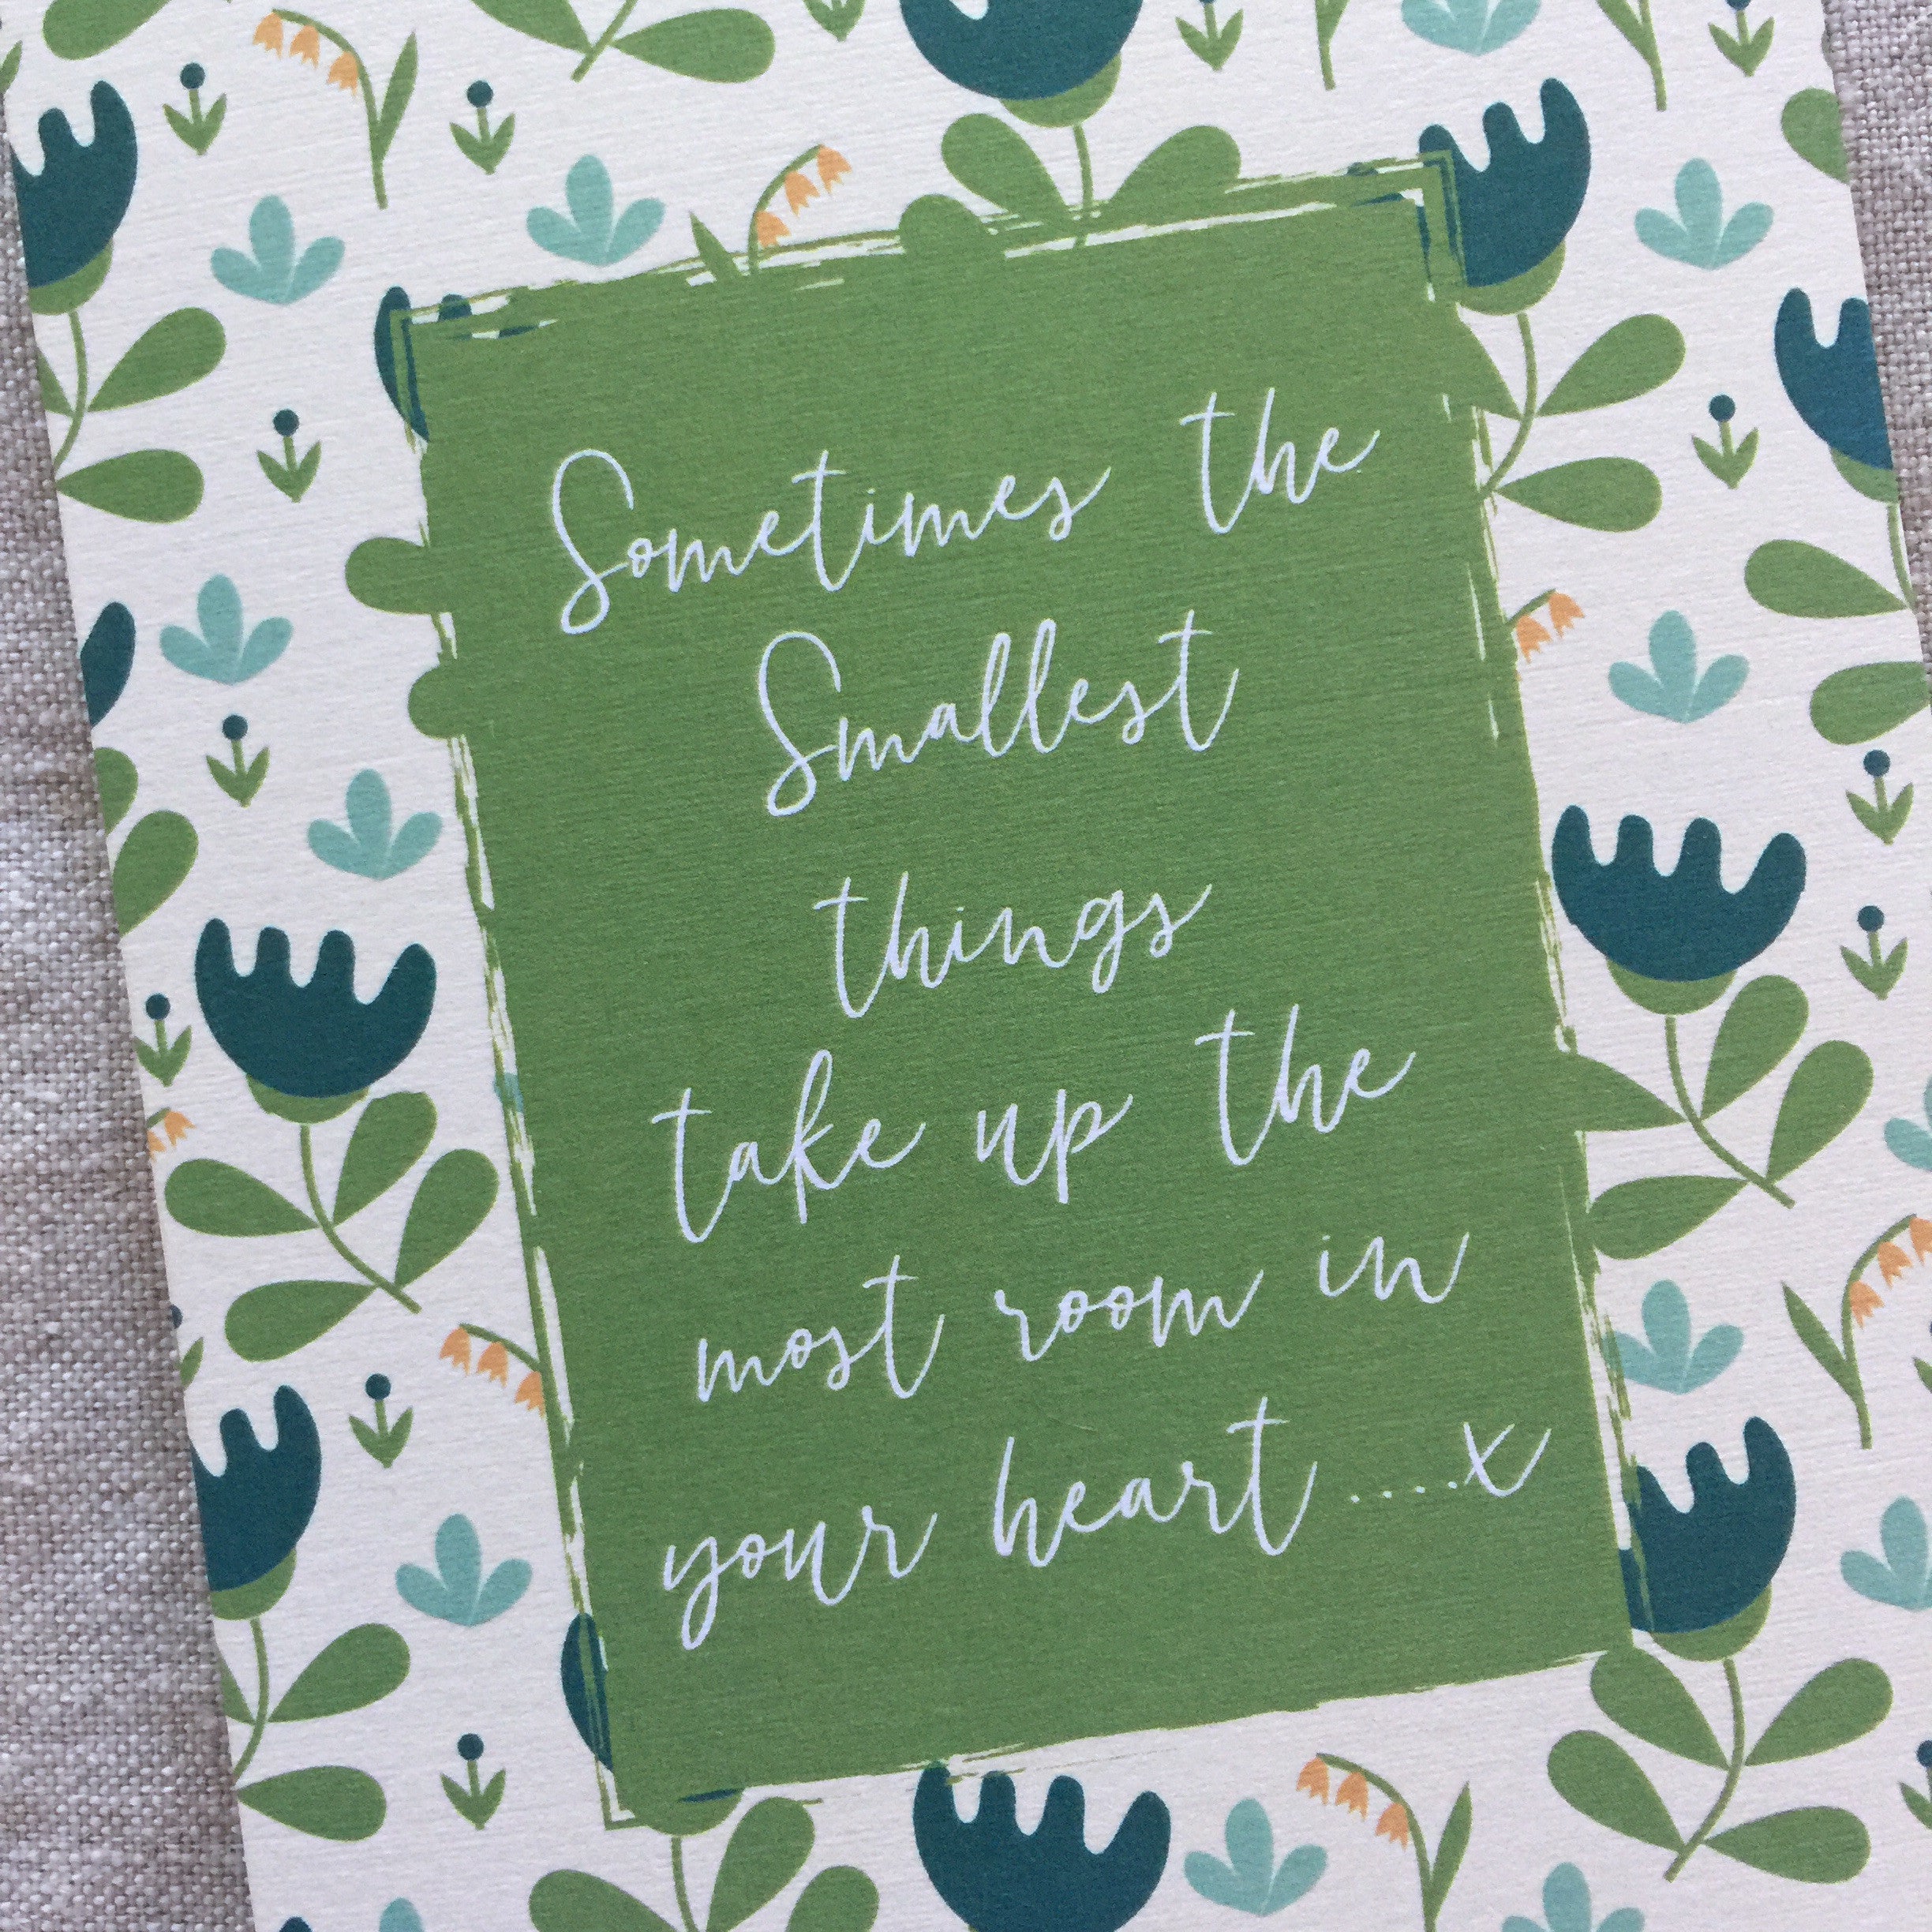 Sometimes the
Smallest
things
take up the
most room in
your heart ....x